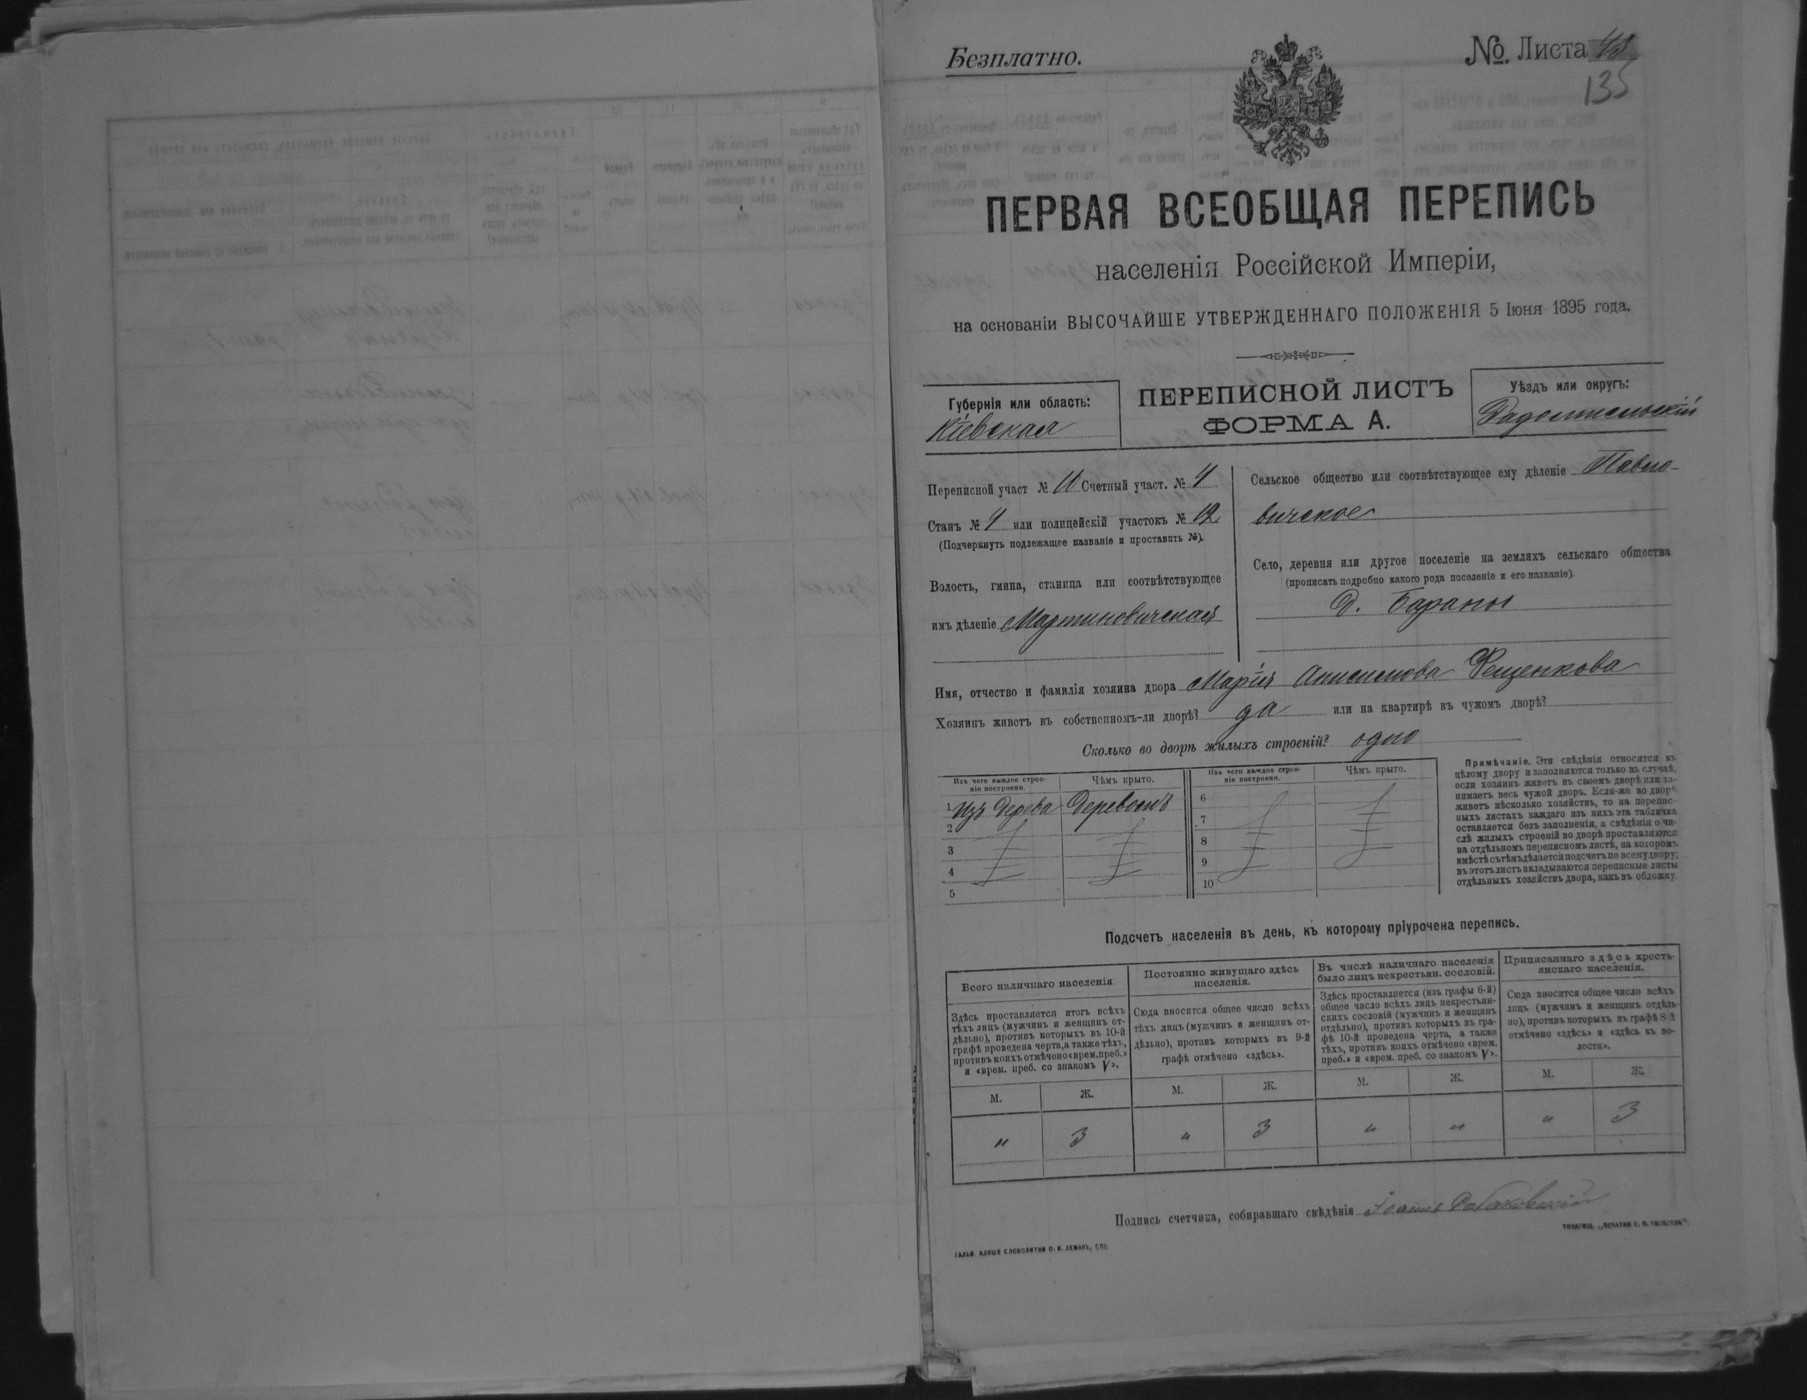 Безплатно.
№. Листа 48
135
ПЕРВАЯ ВСЕОБЩАЯ ПЕРЕПИСЬ
населенія Россійской Имперіи,
на основаніи ВЫСОЧАЙШЕ УТВЕРЖДЕННАГО ПОЛОЖЕНІЯ 5 Іюня 1895 года.
Губернія или область:
Кіевская
ПЕРЕПИСНОЙ ЛИСТЪ
ФОРМА А.
Уѣздъ или округъ:
Радомысльскій
Переписной участ № 11 Счетный участ. № 4
Станъ № 4 или полицейскій участокъ № 12
(Подчеркнуть подлежащее названіе и проставить №).
Волость, гмина, станица или соотвѣтствующее
имъ дѣленіе Мартиновичская
Сельское общество или соотвѣтствующее ему дѣленіе Павло-
вичское
Село, деревня или другое поселеніе на земляхъ сельскаго общества
(прописать подробно какого рода поселеніе и его названіе).
Д. Бараны
Имя, отчество и фамилія хозяина двора Марія Анисимова Фещенкова
Хозяинъ живетъ въ собственномъ-ли дворѣ? да или на квартирѣ въ чужомъ дворѣ?
Сколько во дворѣ жилыхъ строеній? одно
Изъ чего каждое строе-
ніе построено.
Чѣмъ крыто.
1 Изъ дерева Деревомъ
2
3
4
5
Изъ чего каждое строе-
ніе построено.
Чѣмъ крыто.
6
7
8
9
10
Примѣчаніе. Эти свѣдѣнія относятся къ
цѣлому двору и заполняются только въ случаѣ,
если хозяинъ живетъ въ своемъ дворѣ или за-
нимаетъ весь чужой дворъ. Если-же во дворѣ
живетъ нѣсколько хозяйствъ, то на перепис-
ныхъ листахъ каждаго изъ нихъ эта табличка
оставляется безъ заполненія, а свѣдѣнія о чи-
слѣ жилыхъ строеній во дворѣ проставляются
на отдѣльномъ переписномъ листѣ, на которомъ
вмѣстѣ съ тѣмъ дѣлается подсчетъ по всему двору;
въ этотъ листъ вкладываются переписные листы
отдѣльныхъ хозяйствъ двора, какъ въ обложку.
Подсчетъ населенія въ день, къ которому пріурочена перепись.
Всего наличнаго населенія.
Здѣсь проставляется итогъ всѣхъ
тѣхъ лицъ (мужчинъ и женщинъ от-
дѣльно), противъ которыхъ въ 10-й
графѣ проведена черта, а также тѣхъ,
противъ коихъ отмѣчено «врем. преб.»
и «врем. преб. со знакомъ V».
М. Ж.
„ 3
Постоянно живущаго здѣсь
населенія.
Сюда вносится общее число всѣхъ
тѣхъ лицъ (мужчинъ и женщинъ от-
дѣльно), противъ которыхъ въ 9-й
графѣ отмѣчено «здѣсь».
М. Ж.
„ 3
Въ числѣ наличнаго населенія
было лицъ некрестьян. сословій.
Здѣсь проставляется (изъ графы 6-й)
общее число всѣхъ лицъ некрестьян-
скихъ сословій (мужчинъ и женщинъ
отдѣльно), противъ которыхъ въ гра-
фѣ 10-й проведена черта, а также
тѣхъ, противъ коихъ отмѣчено «врем.
преб.» и «врем. преб. со знакомъ V».
М. Ж.
„ „
Приписаннаго здѣсь кресть-
янскаго населенія.
Сюда вносится общее число всѣхъ
лицъ (мужчинъ и женщинъ отдѣль-
но), противъ которыхъ въ графѣ 8-й
отмѣчено «здѣсь» и «здѣсь въ во-
лости».
М. Ж.
„ 3
Подпись счетчика, собиравшаго свѣдѣнія Іоаннъ
ГАЛЬВ. КЛИШЕ СЛОВОЛИТНИ О. И. ЛЕМАНЪ, СПБ.
ТОВАРИЩ. „ПЕЧАТНЯ С. П. ЯКОВЛЕВА".